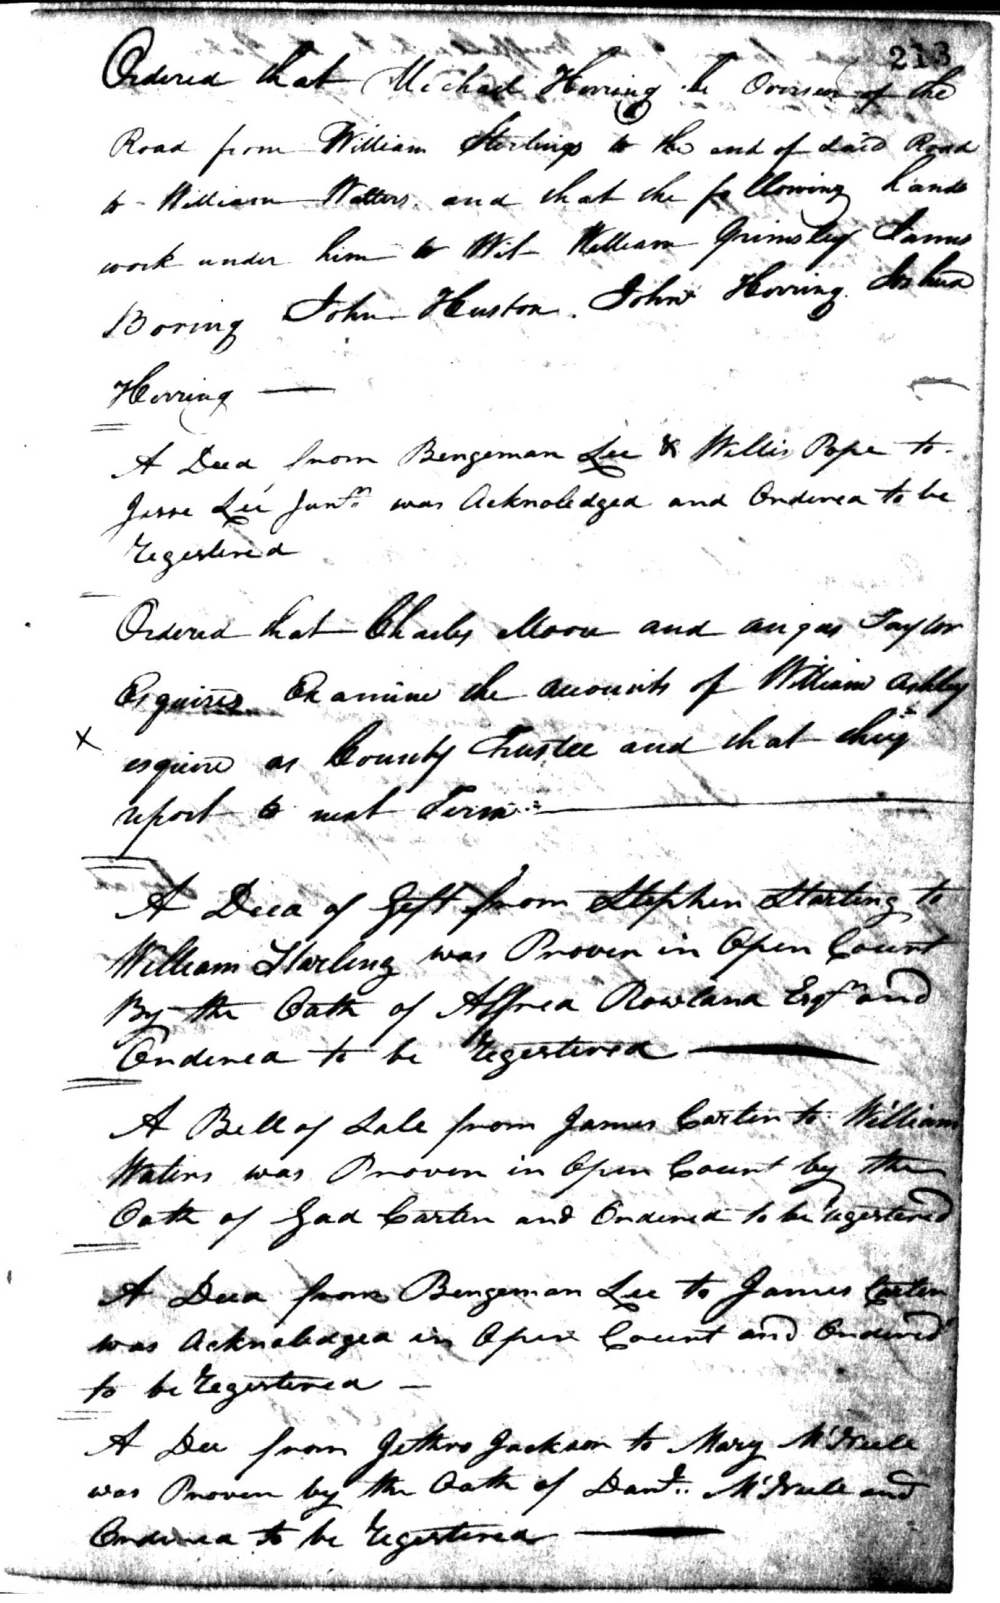 213
Ordered that Michael Herring be Overseer of the
Road from William Sterlings to the end of said Road
to William Watters and that the following hands
work under him to Wit William Grimsley James
Boring John Huston. John Herring Joshua
Herring
A Deed from Bengeman Lee & Willis Pope to
Jesse Lee Junr was Acknoledged and Ordered to be
Regestered
Ordered that Charles Moore and Angus Taylor
Esquires Examine the accounts of William Ashley
X
esquire as County Trustee and that they
report to next Term
A Deed of Gift from Stephen Starling to
William Starling was Proven in Open Court
By the Oath of Alfred Rowland Esqr and
Ordered to be Regestered
A Bell of Sale from James Carter to William
Waters was Proven in Open Court by the
Oath of Gad Carter and Ordered to be regestered
A Deed from Bengeman Lee to James Carter
was Acknoledged in Open Court and Ordered
to be Regestered
A Dee from Jethro Jackson to Mary
was Proven by the Oath of and
Ordered to be Regestered